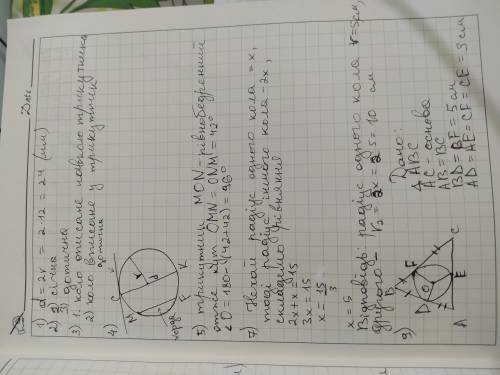 Date
1) d = 2r = 2·12 = 24 (мм)
2) січна
3) дотична
3) 1. коло описане навколо трикутника
2) коло вписане у трикутник
4)
дотична
C
M
K
F
r
d
хорда
5) трикутник MON - рівнобедрений
отже кут OMN = ONM = 42°
∠O = 180 - (42+42) = 96°
7) Нехай радіус одного кола = x,
тоді радіус іншого кола - 2x,
складемо рівняння
2x + x = 15
3x = 15
x = 15/3
x = 5
Відповідь: радіус одного кола r = 5 см,
другого r₂ = 2x = 2·5 = 10 см
9)
B
D
F
O
A
E
C
Дано:
△ ABC
AC - основа
AB = BC
BD = BF = 5 см
AD = AE = CF = CE = 3 см